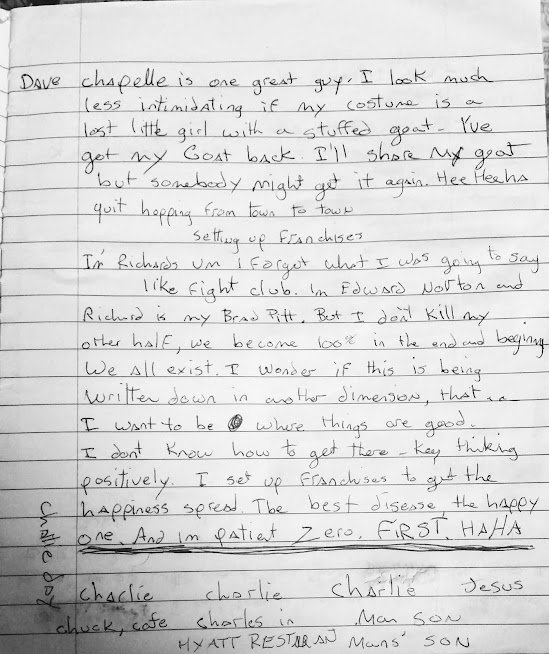 Dave chapelle is one great guy. I look much
less intimidating if my costume is a
lost little girl with a stuffed goat - I've
got my Goat back. I'll share my goat
but somebody might get it again. Hee Hee ha
quit hopping from town to town
setting up Franchises
I'm Richards um i forgot what I was going to say
like fight club. Im Edward Norton and
Richard is my Brad Pitt. But I don't kill my
other half, we become 100% in the end and begining
We all exist. I wonder if this is being
written down in another dimension, that...
I want to be where things are good.
I dont know how to get there - Keep thiking
positively. I set up franchises to get the
happiness spread. The best disease, the happy
one. And im patient Zero. FIRST. HAHA
Charlie charlie Charlie Jesus
chuck, cafe charles in Man SON
HYATT RESTARAN Mans' SON